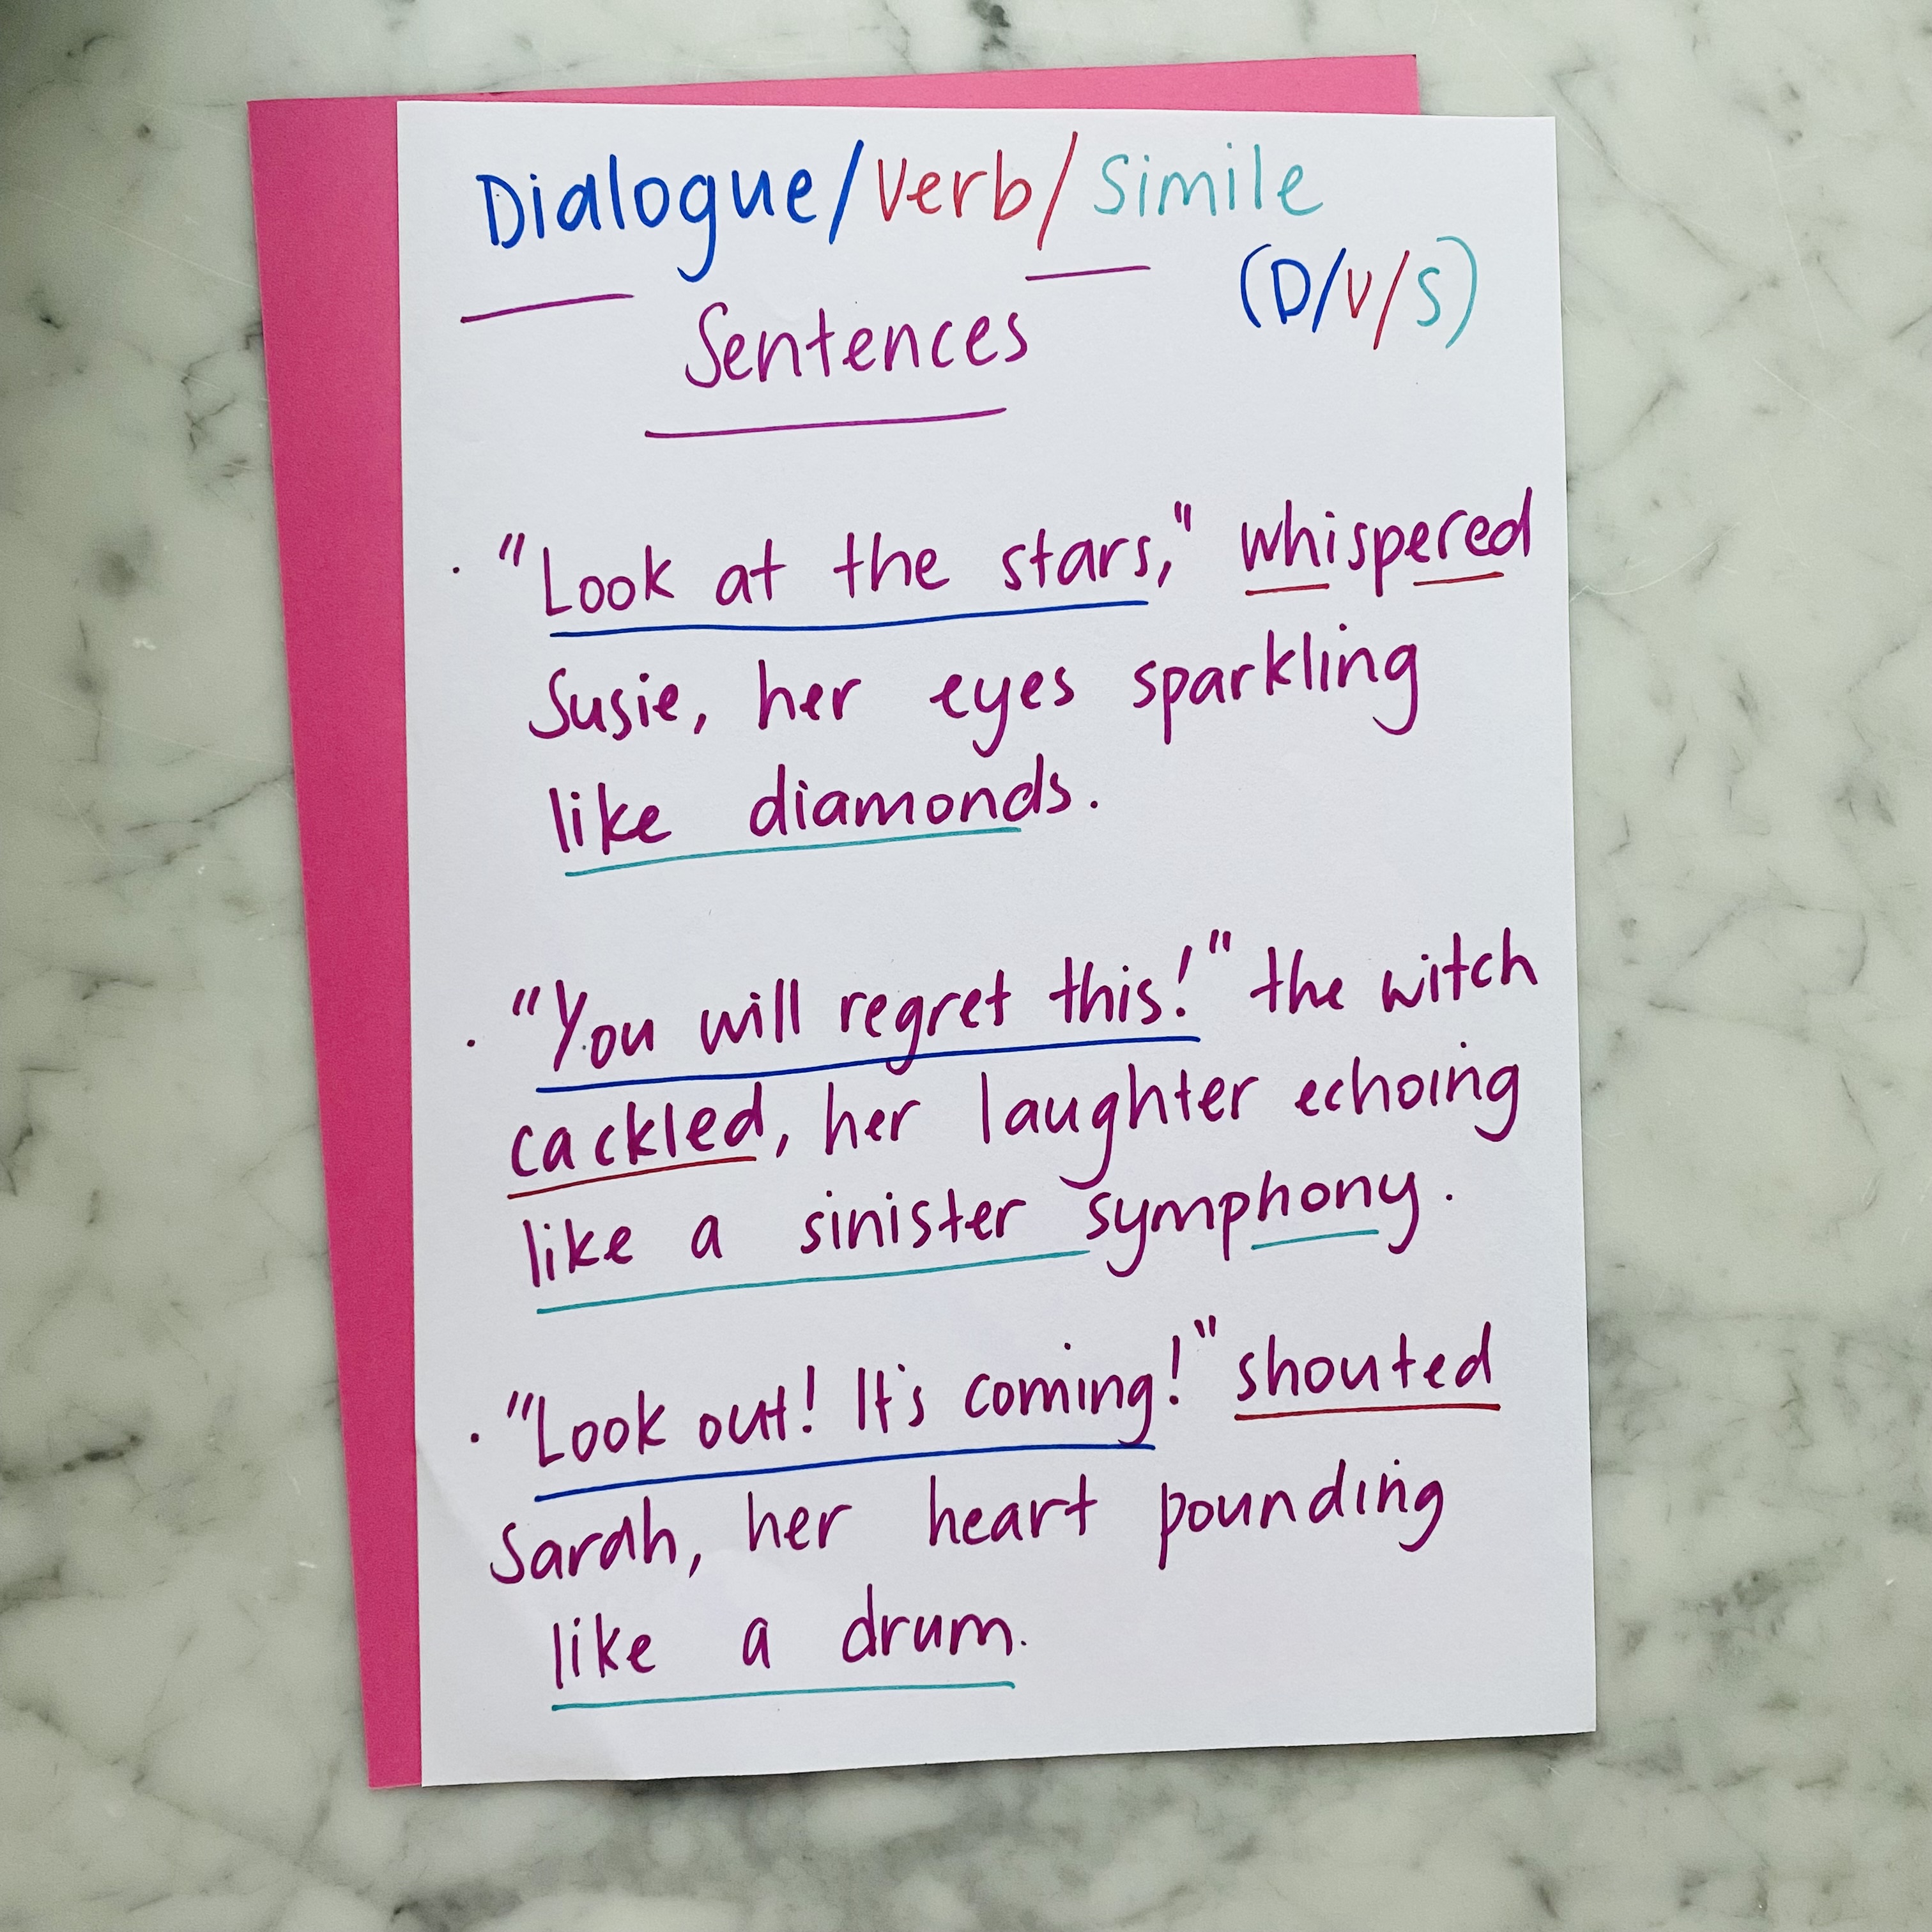 Dialogue/Verb/Simile
(D/V/S)
Sentences
· "Look at the stars," whispered
Susie, her eyes sparkling
like diamonds.
· "You will regret this!" the witch
cackled, her laughter echoing
like a sinister symphony.
· "Look out! It's coming!" shouted
Sarah, her heart pounding
like a drum.